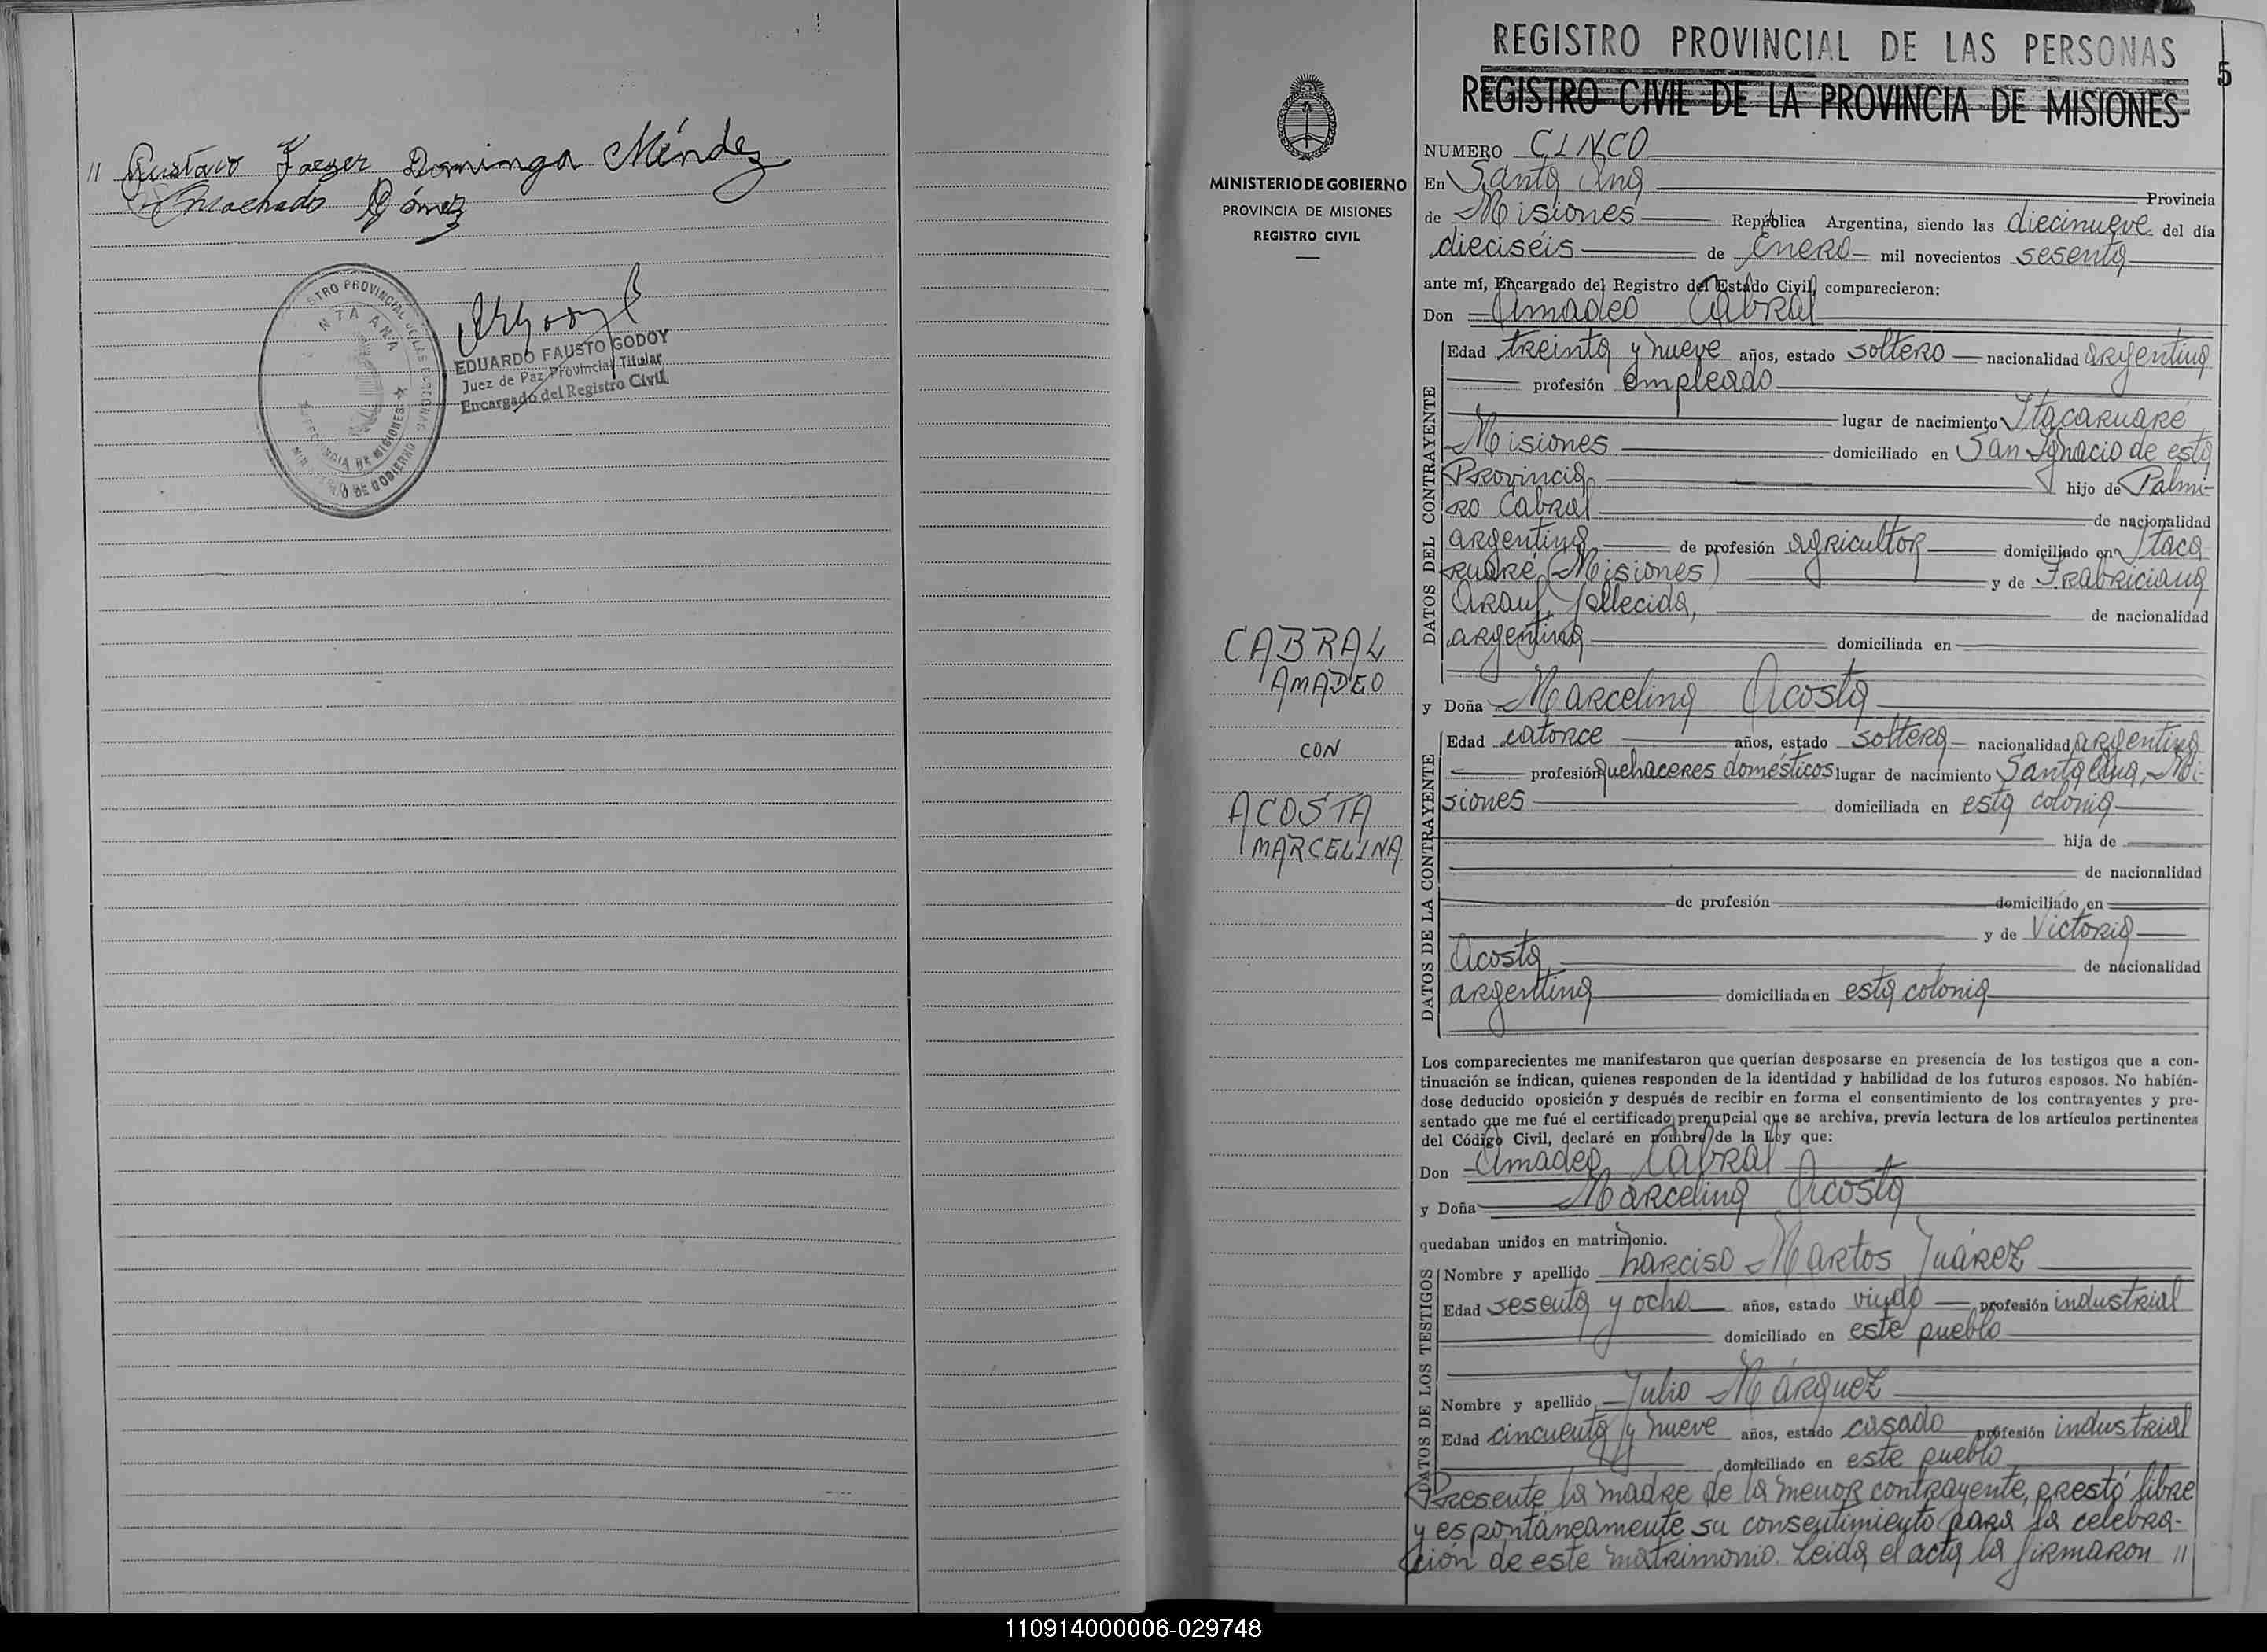 " Gustavo Jaeger Dominga Méndez
Machado Gómez
EDUARDO FAUSTO GODOY
Juez de Paz Provincial Titular
Encargado del Registro Civil
MINISTERIO DE GOBIERNO
PROVINCIA DE MISIONES
REGISTRO CIVIL
CABRAL
AMADEO
CON
ACOSTA
MARCELINA
REGISTRO PROVINCIAL DE LAS PERSONAS
5
REGISTRO CIVIL DE LA PROVINCIA DE MISIONES
NUMERO CINCO
En Santa Ana Provincia
de Misiones República Argentina, siendo las diecinueve del día
dieciséis de Enero mil novecientos sesenta
ante mí, Encargado del Registro del Estado Civil, comparecieron:
Don Amadeo Cabral
DATOS DEL CONTRAYENTE
Edad treinta y nueve años, estado soltero nacionalidad argentina
profesión empleado
lugar de nacimiento Itacaruaré
Misiones domiciliado en San Ignacio de esta
Provincia hijo de Palmi-
ro Cabral de nacionalidad
argentina de profesión agricultor domiciliado en Itaca
ruaré (Misiones) y de Frabriciana
fallecida, de nacionalidad
argentina domiciliada en
y Doña Marcelina Acosta
DATOS DE LA CONTRAYENTE
Edad catorce años, estado soltera nacionalidad argentina
profesión quehaceres domésticos lugar de nacimiento Santa Ana, Mi-
siones domiciliada en esta colonia
hija de
de nacionalidad
de profesión domiciliado en
y de Victoria
Acosta de nacionalidad
argentina domiciliada en esta colonia
Los comparecientes me manifestaron que querían desposarse en presencia de los testigos que a con-
tinuación se indican, quienes responden de la identidad y habilidad de los futuros esposos. No habién-
dose deducido oposición y después de recibir en forma el consentimiento de los contrayentes y pre-
sentado que me fué el certificado prenupcial que se archiva, previa lectura de los artículos pertinentes
del Código Civil, declaré en nombre de la Ley que:
Don Amadeo Cabral
y Doña Marcelina Acosta
quedaban unidos en matrimonio.
DATOS DE LOS TESTIGOS
Nombre y apellido Narciso Martos Juárez
Edad sesenta y ocho años, estado viudo profesión industrial
domiciliado en este pueblo
Nombre y apellido Julio Márquez
Edad cincuenta y nueve años, estado casado profesión industrial
domiciliado en este pueblo
Presente la madre de la menor contrayente, prestó libre
y espontáneamente su consentimiento para la celebra-
ción de este matrimonio. Leída el acta la firmaron "
110914000006-029748